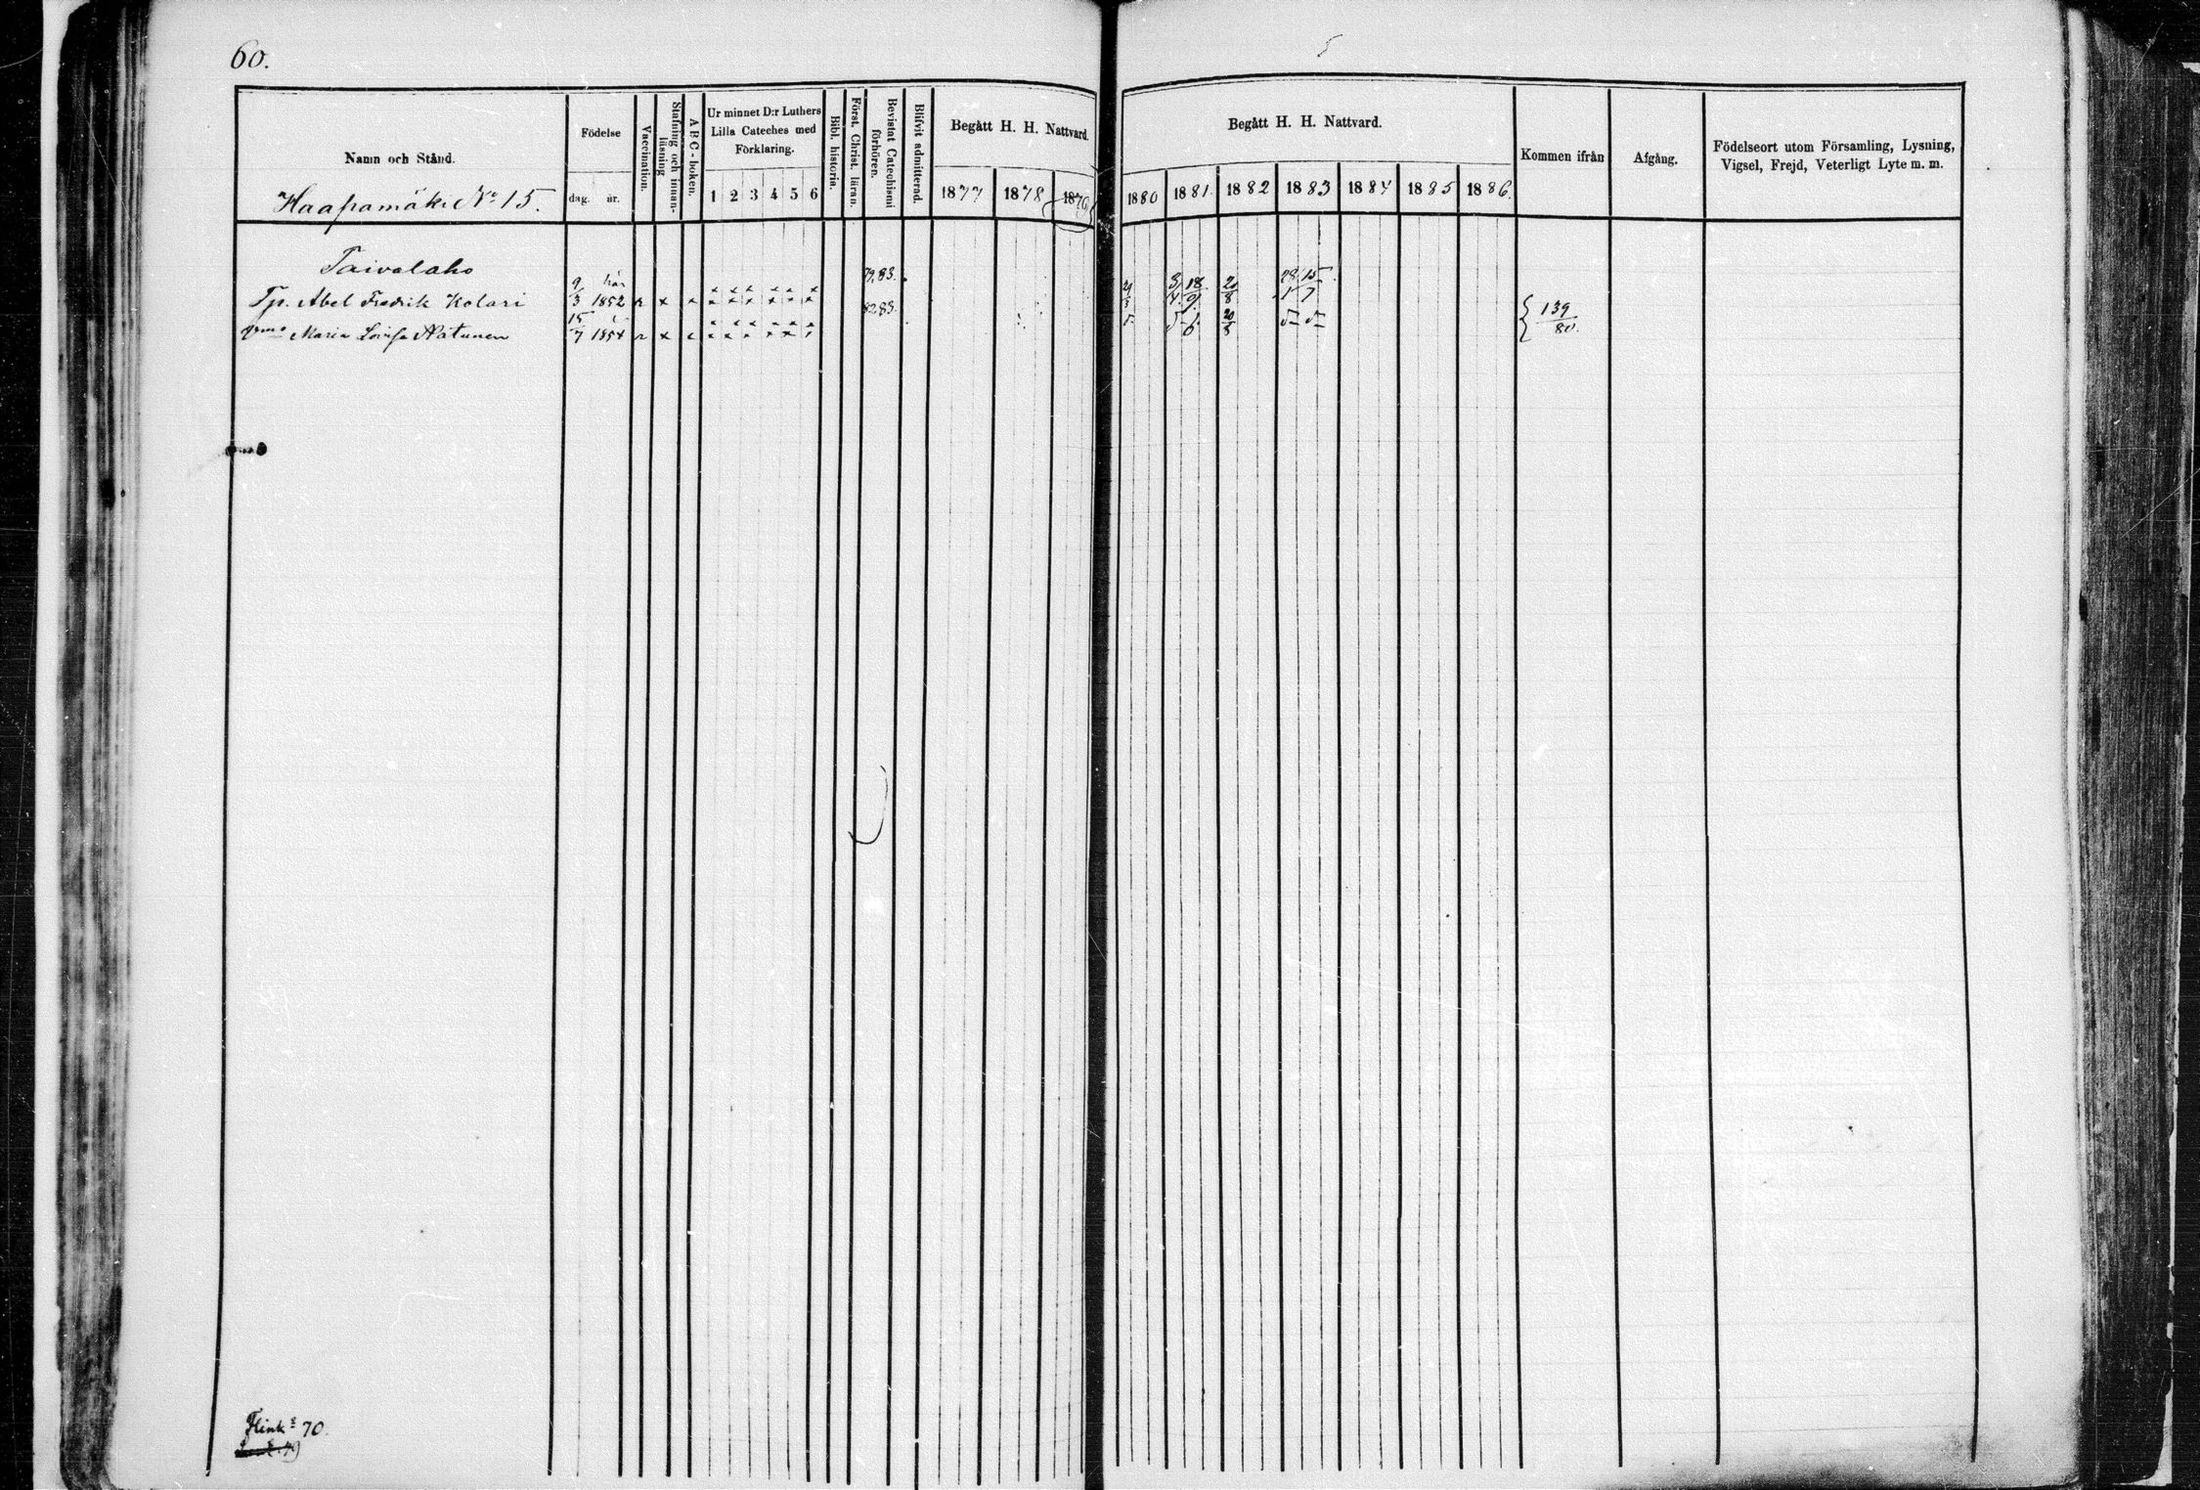 60.
Namn och Stånd.
Haapamäki No 15.
Födelse
dag. år.
Vaccination.
Stafning och innanläsning
A B C-boken.
Ur minnet D:r Luthers
Lilla Cateches med
Förklaring.
1 2 3 4 5 6
Bibl. historia.
Först. Christ. läran.
Bevistat Catechismi förhören.
Blifvit admitterad.
Begått H. H. Nattvard.
1877 1878 1879
Begått H. H. Nattvard.
1880 1881 1882 1883 1884 1885 1886.
Kommen ifrån
Afgång.
Födelseort utom Församling, Lysning,
Vigsel, Frejd, Veterligt Lyte m. m.
Taivalaho
Tp. Abel Fredrik Kolari 9/3 här 1852 79,83. 3/4 18/9 20/8 28/1 15/7
Maria Lovisa Natunen 15/7 1854 82.83. 20/8
139/80.
Flink s 70.